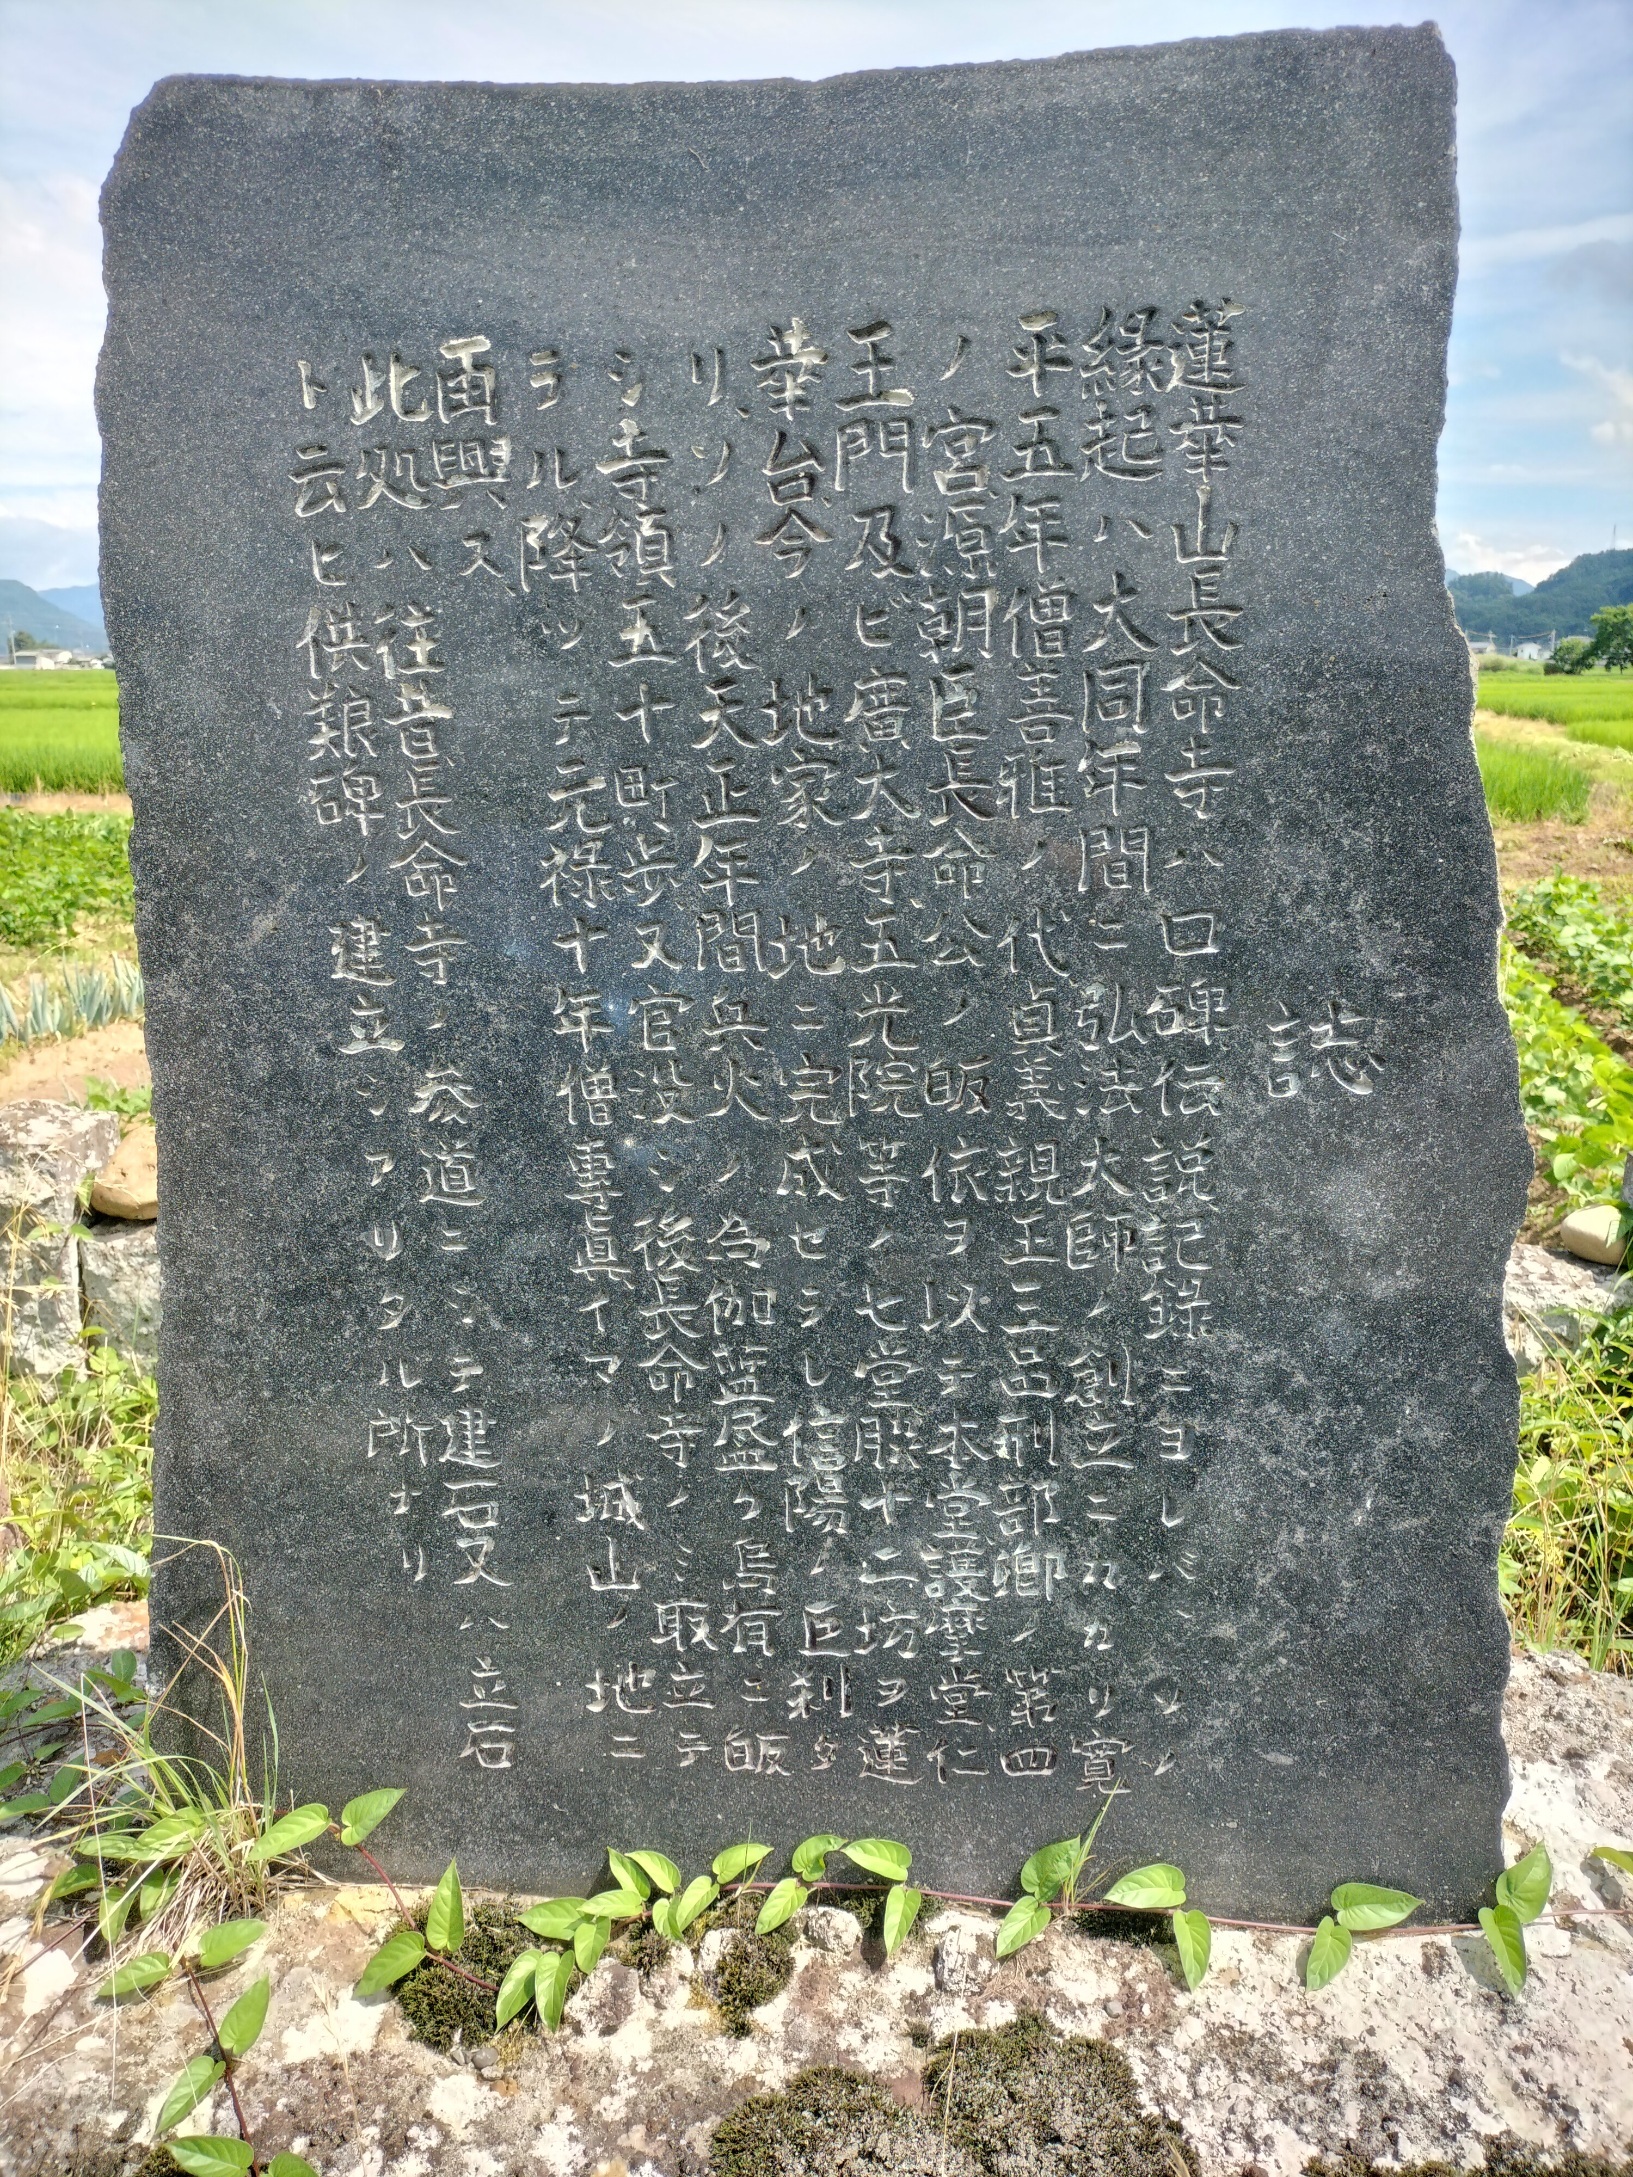 誌
蓮華山長命寺ハ口碑伝説記録ニヨレバ、ソノ
縁起ハ大同年間ニ弘法大師ノ創立ニカカリ寛
平五年僧善雅ノ代貞義親王三品刑部卿ノ第四
ノ宮源朝臣長命公ノ皈依ヲ以テ本堂護摩堂仁
王門及ビ廣大寺五光院等ノ七堂股十二坊ヲ蓮
華台今ノ地家ノ地ニ完成セシレ信陽ノ巨刹タ
リ、ソノ後天正年間兵火ノ為伽藍盡ク烏有ニ皈
シ寺領五十町歩又官没シ後長命寺ノミ取立テ
ラル、降ッテ元禄十年僧專眞イマノ城山ノ地ニ
再興ス
此処ハ往昔長命寺ノ参道ニシテ建石又ハ立石
ト云ヒ供粮碑ノ建立シアリタル所ナリ